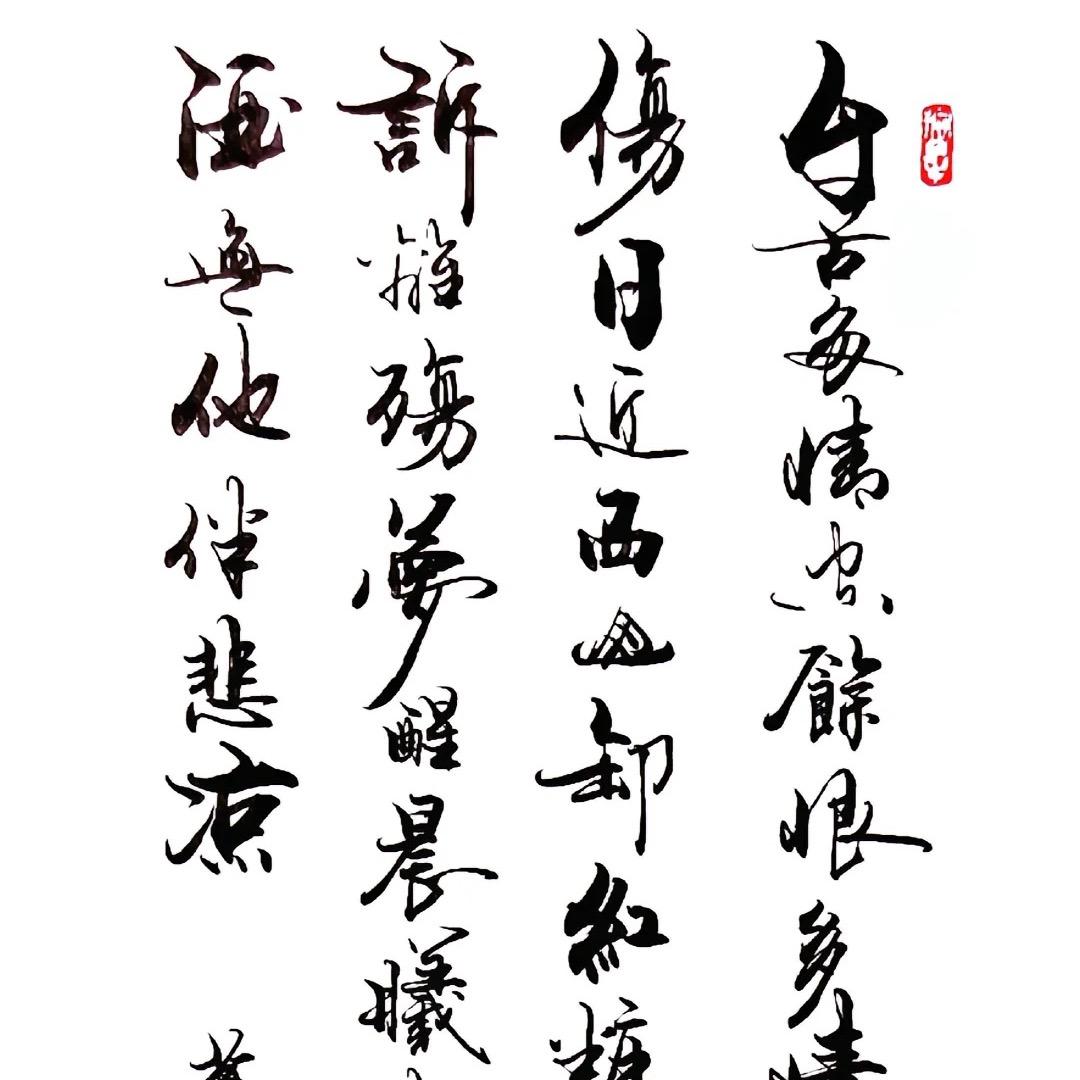 自古每情空餘恨多情
傷日近西山卸紅糚
訴離殤夢醒晨曦
酒無他伴悲凉